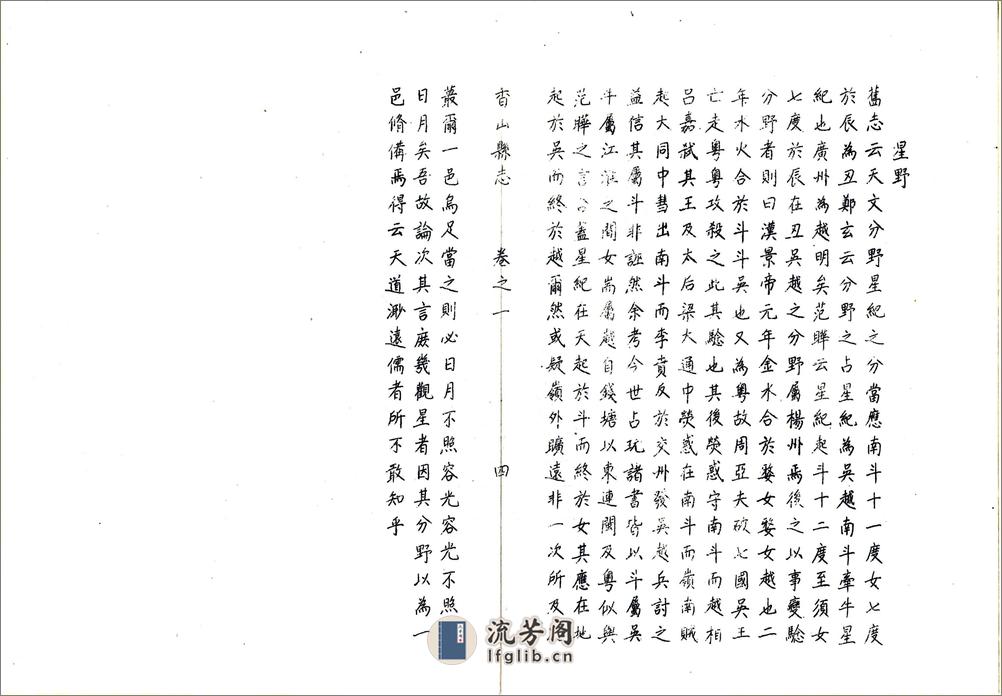 星野
舊志云天文分野星紀之分當應南斗十一度女七度
於辰為丑鄭玄云分野之占星紀為吳越南斗牽牛星
紀也廣州為越明矣范曄云星紀起斗十二度至須女
七度於辰在丑吳越之分野屬楊州焉後之以事變驗
分野者則曰漢景帝元年金水合於婺女婺女越也二
年水火合於斗斗吳也又為粵故周亞夫破七國吳王
亡走粵粵攻殺之此其驗也其後熒惑守南斗而越相
呂嘉弒其王及太后梁大通中熒惑在南斗而嶺南賊
起大同中彗出南斗而李賁反於交州發吳越兵討之
益信其屬斗非誣然余考今世占玩諸書皆以斗屬吳
牛屬江淮之間女耑屬越自錢塘以東連閩及粵似與
范曄之言合蓋星紀在天起於斗而終於女其應在地
起於吳而終於越爾然或疑嶺外曠遠非一次所及
香山縣志 卷之一 四
蕞爾一邑烏足當之則必日月不照容光容光不照
日月矣吾故論次其言庶幾觀星者因其分野以為一
邑脩備焉得云天道渺遠儒者所不敢知乎
流芳阁
lfglib.cn